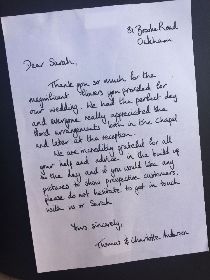 81 Brooke Road
Oakham
Dear Sarah,
Thank you so much for the
magnificent flowers you provided for
our wedding. We had the perfect day
and everyone really appreciated the
floral arrangements both in the Chapel
and later at the reception.
We are incredibly grateful for all
your help and advice in the build up
to the day and if you would like any
pictures to show prospective customers,
please do not hesitate to get in touch
with us or Sarah.
Yours sincerely,
Thomas & Charlotte